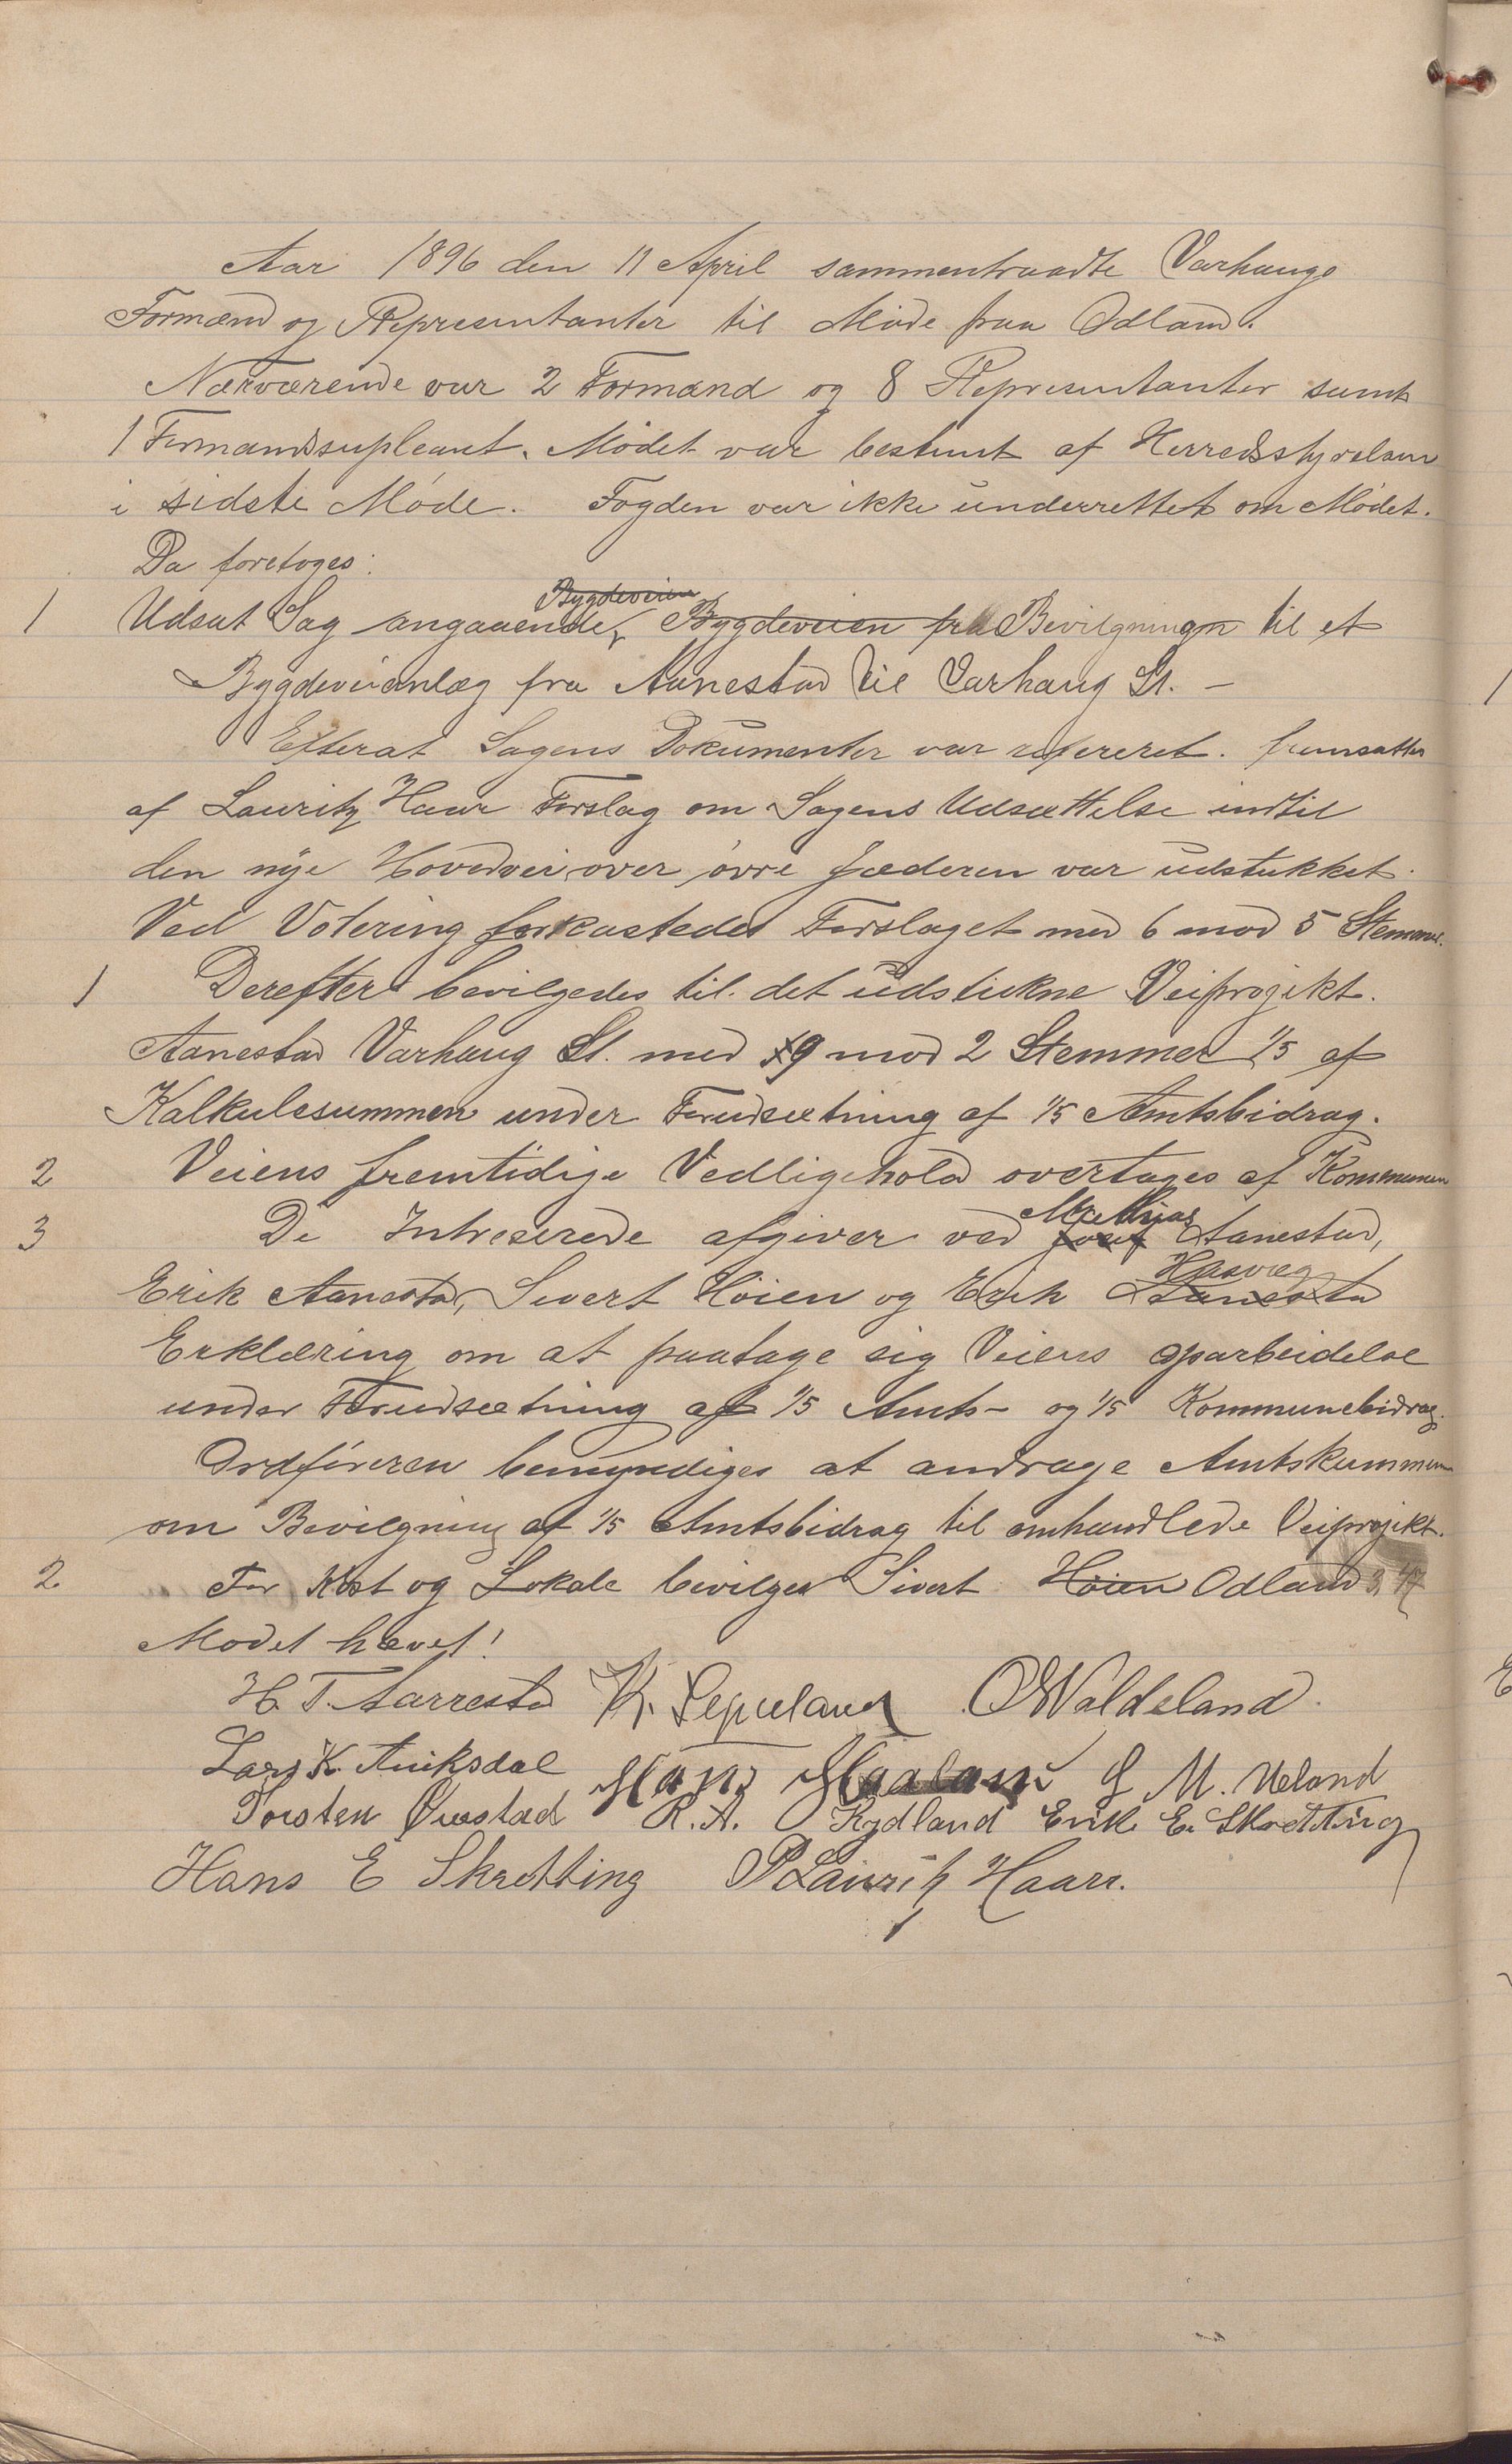 Aar 1896 den 11 April sammentraadte Varhaugs
Formænd og Repræsentanter til Møde paa Odland.
Nærværende var 2 Formænd og 8 Repræsentanter samt
1 Formandssupleant. Mødet var bestemt af Herredsstyrelsen
i sidste Møde. Fogden var ikke underrettet om Mødet.
Da foretoges:
Bygdeveien
1 Udsat Sag angaaende Bygdeveien fra Bevilgningen til et
Bygdeveianlæg fra Aanestad til Varhaug St. –
Efterat Sagens Dokumenter var refereret. fremsattes
af Lauritz Haar Forslag om Sagens Udsættelse indtil
den nye Hovedvei over øvre Jæderen var udstukket.
Ved Votering forkastedes Forslaget med 6 mod 5 Stemmer.
1 Derefter bevilgedes til det udstukne Veiprojekt.
Aanestad Varhaug St. med 9 mod 2 Stemmer 1/5 af
Kalkulesummen under Forudsætning af 1/5 Amtsbidrag.
2 Veiens fremtidige Vedligehold overtages af Kommunen
Mathias
3 De Intreserede afgiver ved Aanestad,
Hæsvæg
Erik Aanestad, Sivert Høien og Erik Aanestad
Erklæring om at paatage sig Veiens oparbeidelse
under Forudsætning af 1/5 Amts- og 1/5 Kommunebidrag.
Ordføreren bemyndiges at andrage Amtskommunen
om Bevilgning af 1/5 Amtsbidrag til omhandlede Veiprojekt.
2 For Kost og Lokale bevilges Sivert Høien Odland 3,47
Mødet hævet!
H. T. Aarrestad K. Sepuland O W Valdeland.
Lars K. Auksdal Hans Haaland G M. Ueland
Torsten Qvestad R. A. Rydland Erik E. Skretting
Hans E Skretting P Lauritz Haarr.